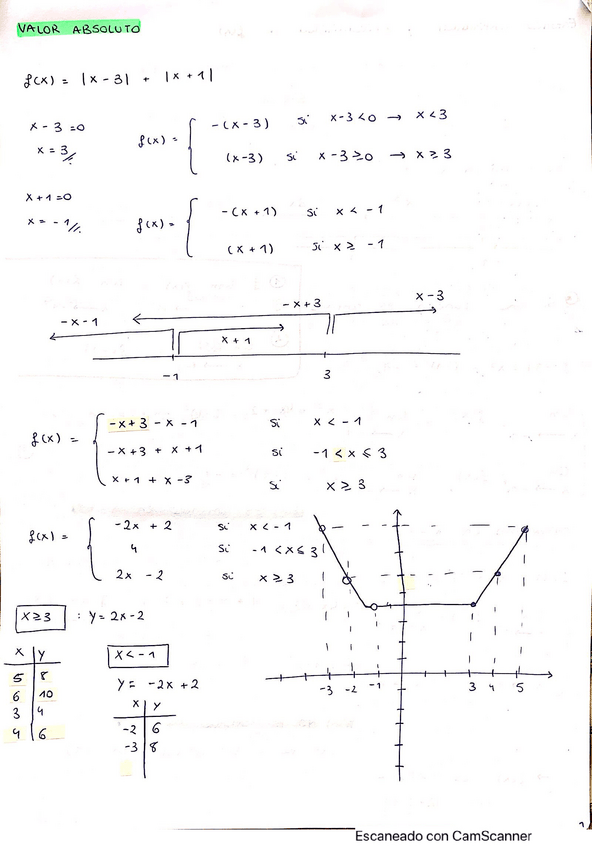 VALOR ABSOLUTO
f(x) = |x-3| + |x+1|
x-3=0
x=3
f(x) = { -(x-3) si x-3<0 → x<3
(x-3) si x-3≥0 → x≥3
x+1=0
x=-1
f(x) = { -(x+1) si x < -1
(x+1) si x ≥ -1
-x-1
-x+3
x-3
x+1
-1
3
f(x) = { -x+3 -x -1 si x < -1
-x+3 + x +1 si -1 < x ≤ 3
x+1 + x-3 si x ≥ 3
f(x) = { -2x + 2 si x < -1
4 si -1 < x ≤ 3
2x - 2 si x ≥ 3
x≥3 : y = 2x-2
x y
5 8
6 10
3 4
4 6
x < -1
y = -2x + 2
x y
-2 6
-3 8
4
-3 -2 -1 3 4 5
1
Escaneado con CamScanner